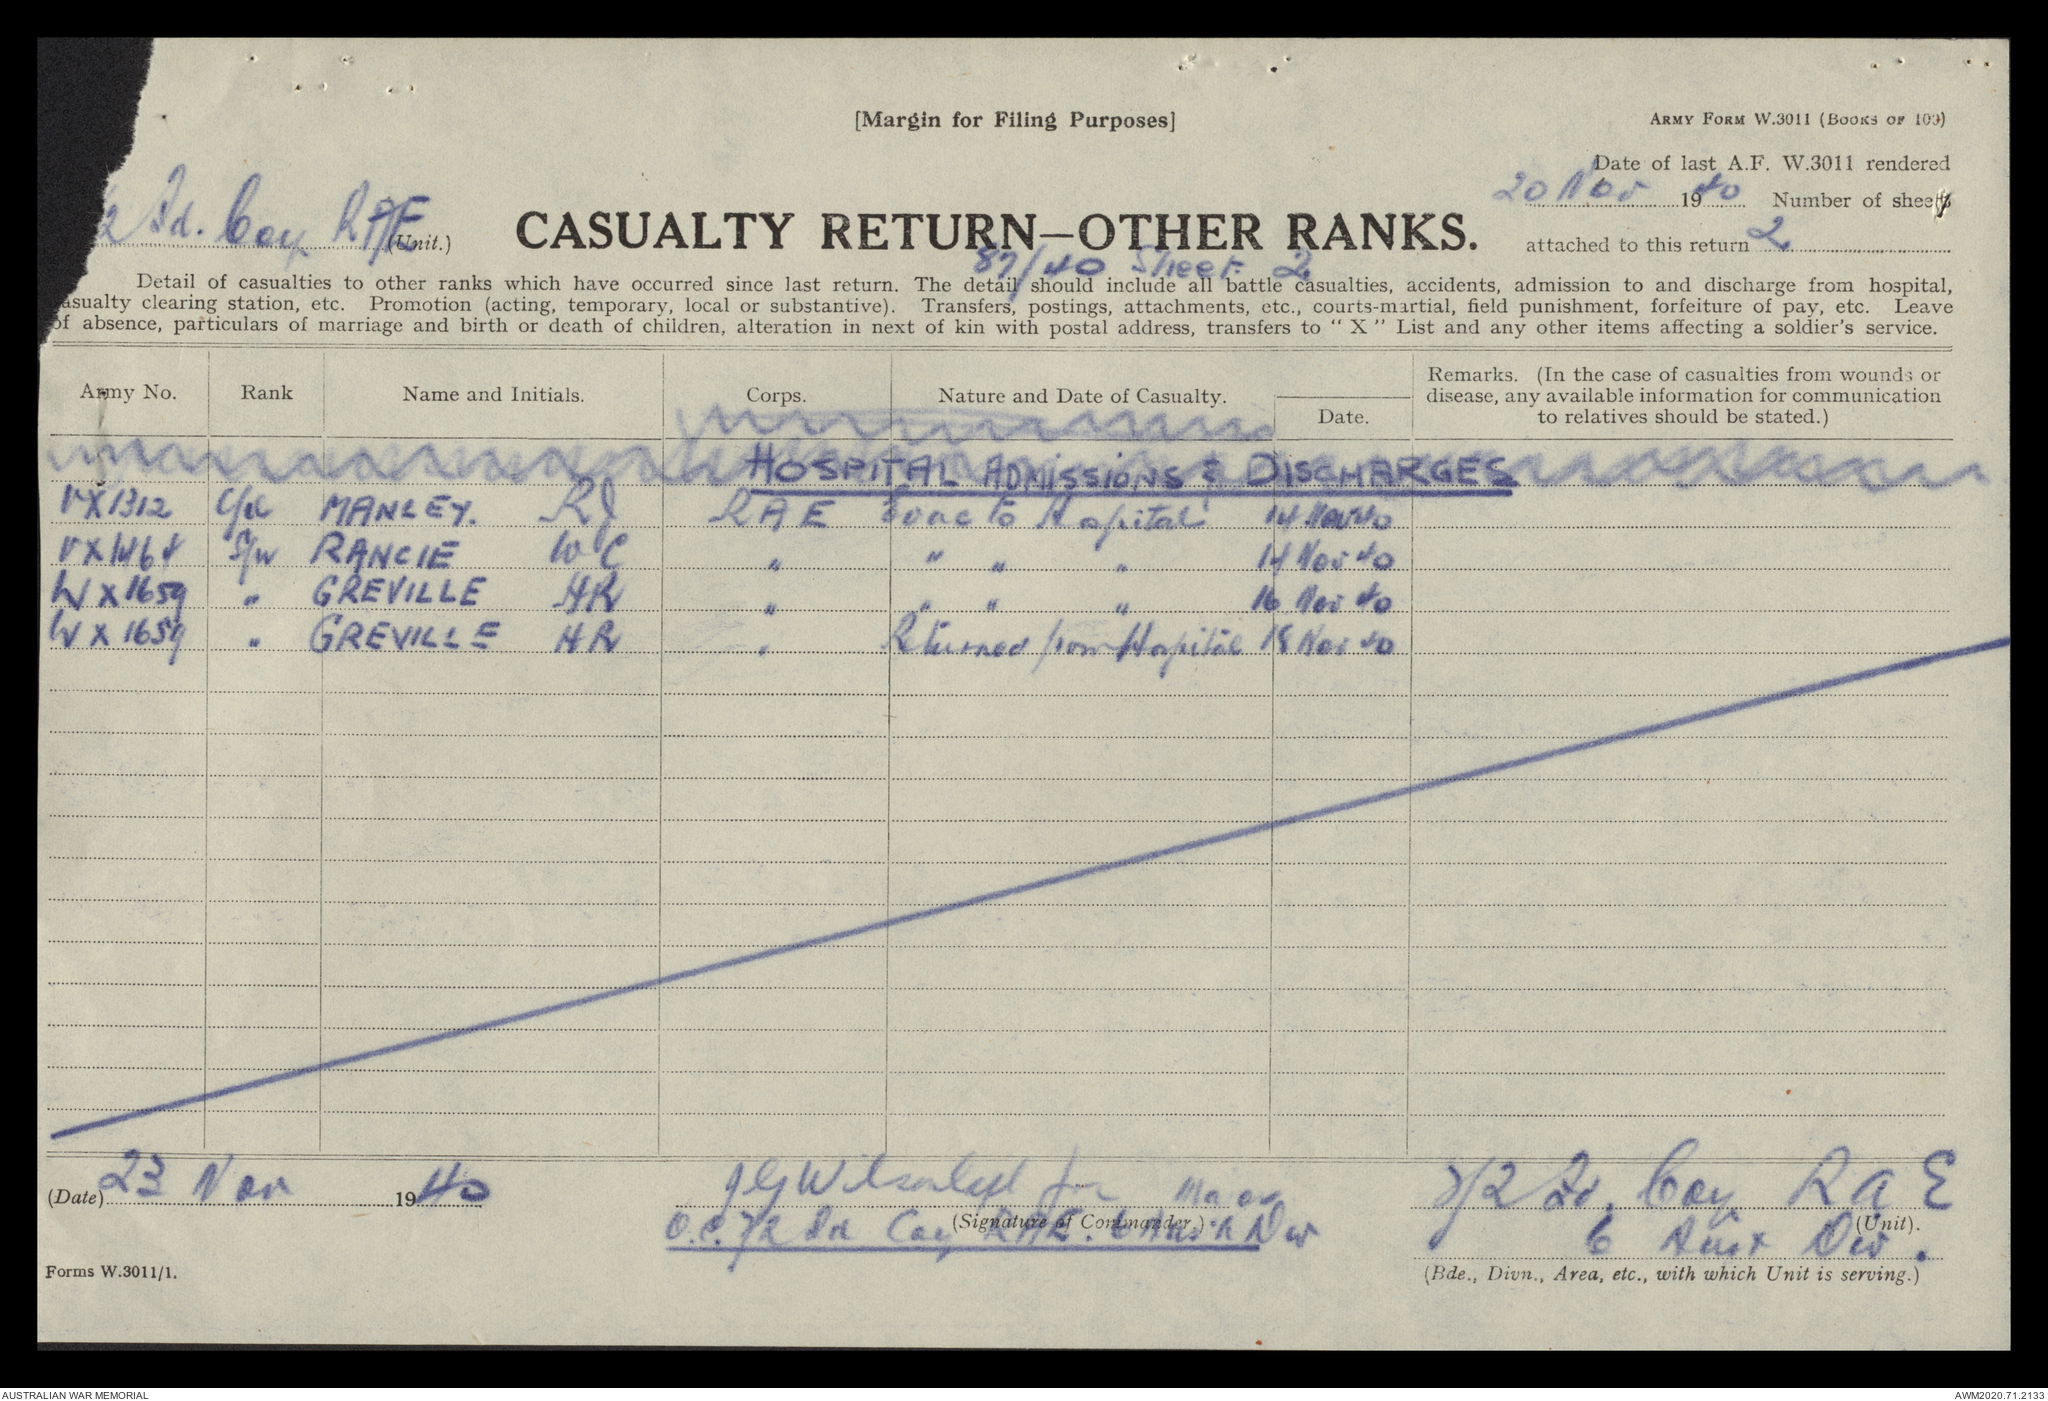 [Margin for Filing Purposes]
ARMY FORM W.3011 (BOOKS OF 100)
Date of last A.F. W.3011 rendered
20 Nov 1940 Number of sheets
2 Fd. Coy RAE (Unit.)
CASUALTY RETURN—OTHER RANKS.
attached to this return 2
87/40 Sheet 2
Detail of casualties to other ranks which have occurred since last return. The detail should include all battle casualties, accidents, admission to and discharge from hospital,
asualty clearing station, etc. Promotion (acting, temporary, local or substantive). Transfers, postings, attachments, etc., courts-martial, field punishment, forfeiture of pay, etc. Leave
of absence, particulars of marriage and birth or death of children, alteration in next of kin with postal address, transfers to " X " List and any other items affecting a soldier's service.
Army No. Rank Name and Initials. Corps. Nature and Date of Casualty. Date. Remarks. (In the case of casualties from wounds or
disease, any available information for communication
to relatives should be stated.)
HOSPITAL ADMISSIONS & DISCHARGES
VX1312 Cpl MANLEY. RJ RAE Evac to Hospital 14 Nov 40
VX1464 Spr RANCIE WC " " " " 14 Nov 40
WX1659 " GREVILLE HR " " " " 16 Nov 40
WX1659 " GREVILLE HR " Returned from Hospital 18 Nov 40
(Date) 23 Nov 1940
JGWilson Capt for Major
(Signature of Commander.)
O.C. 2/2 Fd Coy RAE. 6 Aust Div
2/2 Fd. Coy RAE
(Unit).
6 Aust Div.
(Bde., Divn., Area, etc., with which Unit is serving.)
Forms W.3011/1.
AUSTRALIAN WAR MEMORIAL
AWM2020.71.2133